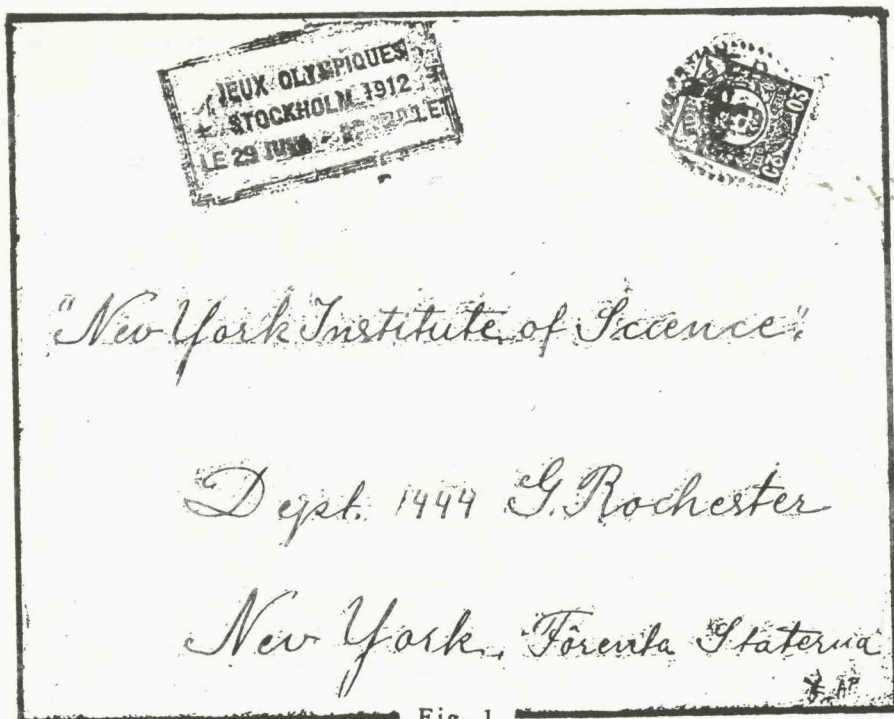 JEUX OLYMPIQUES
STOCKHOLM 1912
LE 29 JUIN - 22 JUILLET
20
"New York Institute of Science".
Dept. 1444 G. Rochester
New York. Förenta Staterna
AP
Fig. 1